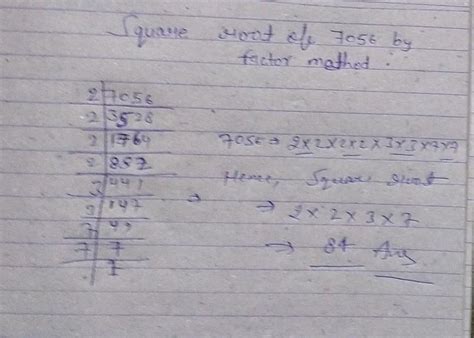 Square root of 7056 by
factor method.
2 | 7056
2 | 3528
2 | 1764
2 | 882
3 | 441
3 | 147
7 | 49
7 | 7
1
7056 → 2×2×2×2×3×3×7×7
Hence, Square root
→ → 2×2×3×7
→ 84 Ans